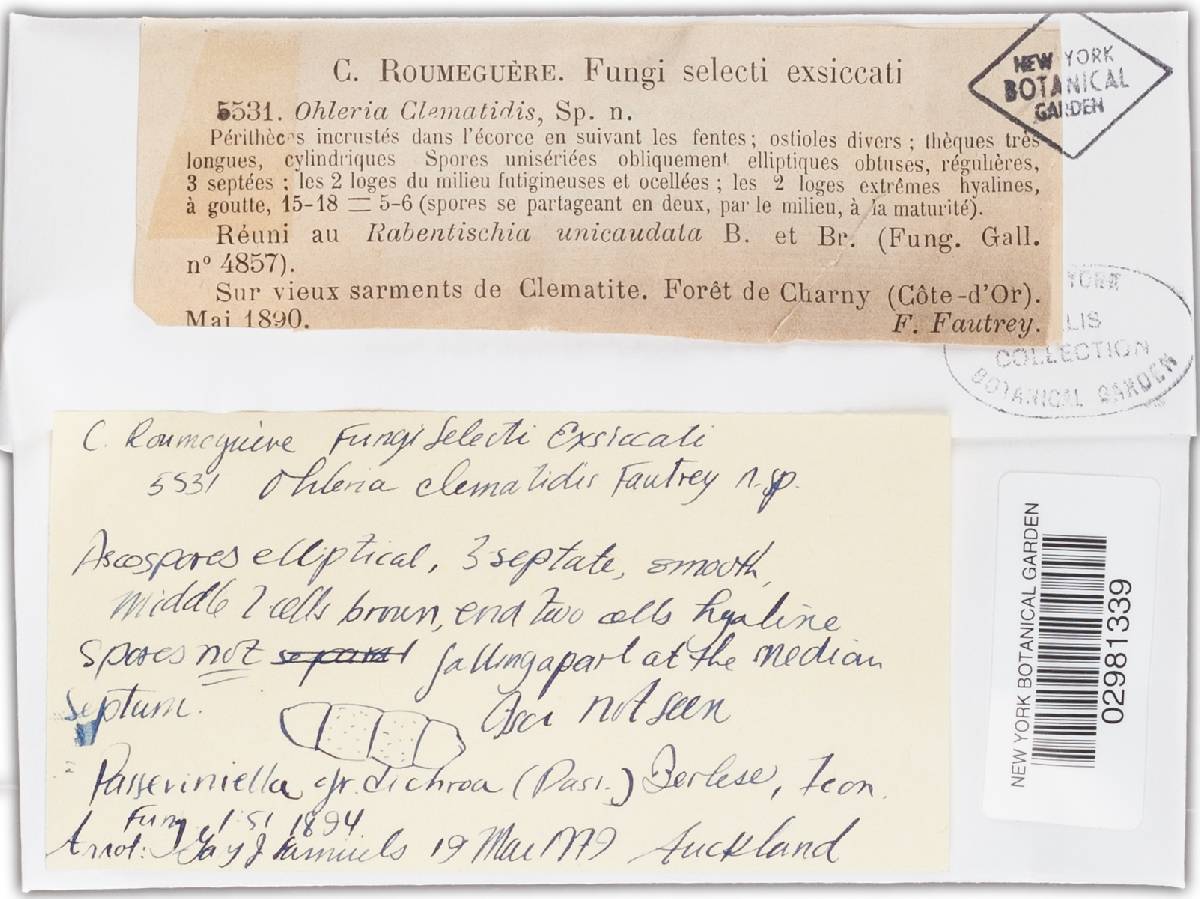 C. ROUMEGUÈRE. Fungi selecti exsiccati
5531. Ohleria Clematidis, Sp. n.
Périthèces incrustés dans l'écorce en suivant les fentes; ostioles divers; thèques très
longues, cylindriques Spores unisériées obliquement elliptiques obtuses, régulières,
3 septées; les 2 loges du milieu futigineuses et ocellées; les 2 loges extrêmes hyalines,
à goutte, 15-18 = 5-6 (spores se partageant en deux, par le milieu, à la maturité).
Réuni au Rabentischia unicaudata B. et Br. (Fung. Gall.
n° 4857).
Sur vieux sarments de Clematite. Forêt de Charny (Côte-d'Or).
Mai 1890. F. Fautrey.
NEW YORK
BOTANICAL
GARDEN
YORK
LIS
COLLECTION
BOTANICAL GARDEN
C. Roumeguère Fungi Selecti Exsiccati
5531 Ohleria clematidis Fautrey n. sp.
Ascospores elliptical, 3 septate, smooth,
middle 2 cells brown, end two cells hyaline
spores not separat falling apart at the median
septum. Asci not seen
Passeriniella gr. dichroa (Pass.) Berlese, Icon.
Fung. 1:51 1894
Annot: Gary J Samuels 19 Mar 1979 Auckland
NEW YORK BOTANICAL GARDEN
02981339